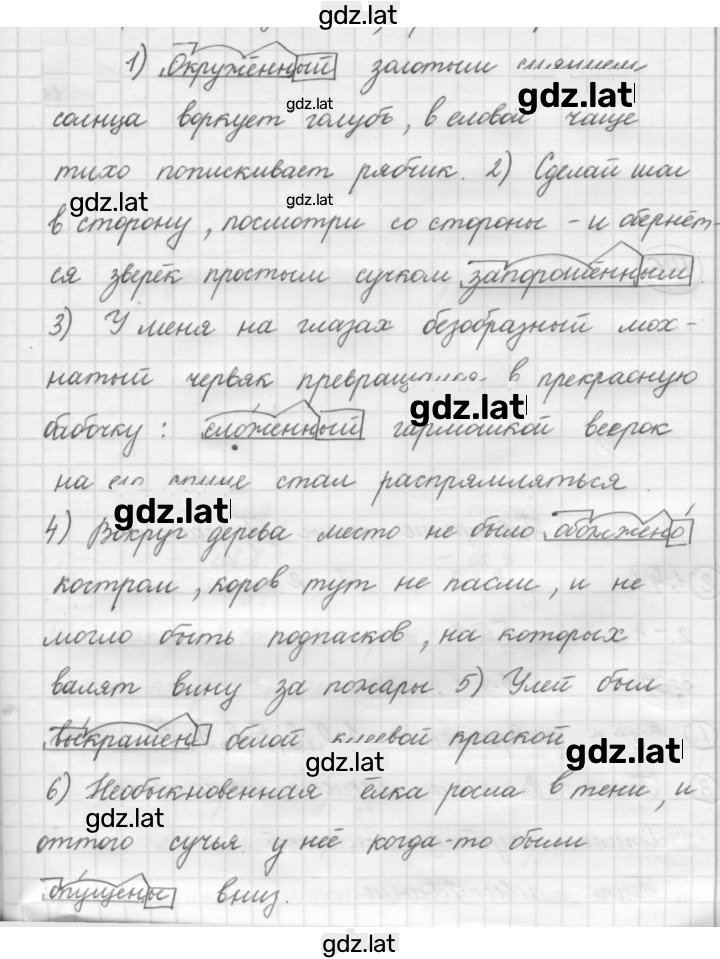 gdz.lat
1) Окружённый золотым сиянием
gdz.lat
gdz.lat
солнца воркует голубь, в еловой чаще
тихо попискивает рябчик. 2) Сделай шаг
gdz.lat
gdz.lat
в сторону, посмотри со стороны – и обернёт-
ся зверёк простым сучком запорошённым.
3) У меня на глазах безобразный мох-
натый червяк превращался в прекрасную
gdz.lat
бабочку: сложенный гармошкой всерок
на его спине стал распрямляться.
gdz.lat
4) Вокруг дерева место не было обожжено
костром, коров тут не пасли, и не
могло быть подпасков, на которых
валят вину за пожары. 5) Улей был
выкрашен белой клеевой краской
gdz.lat
gdz.lat
6) Необыкновенная ёлка росла в тени, и
gdz.lat
оттого сучья у неё когда-то были
опущены вниз.
gdz.lat